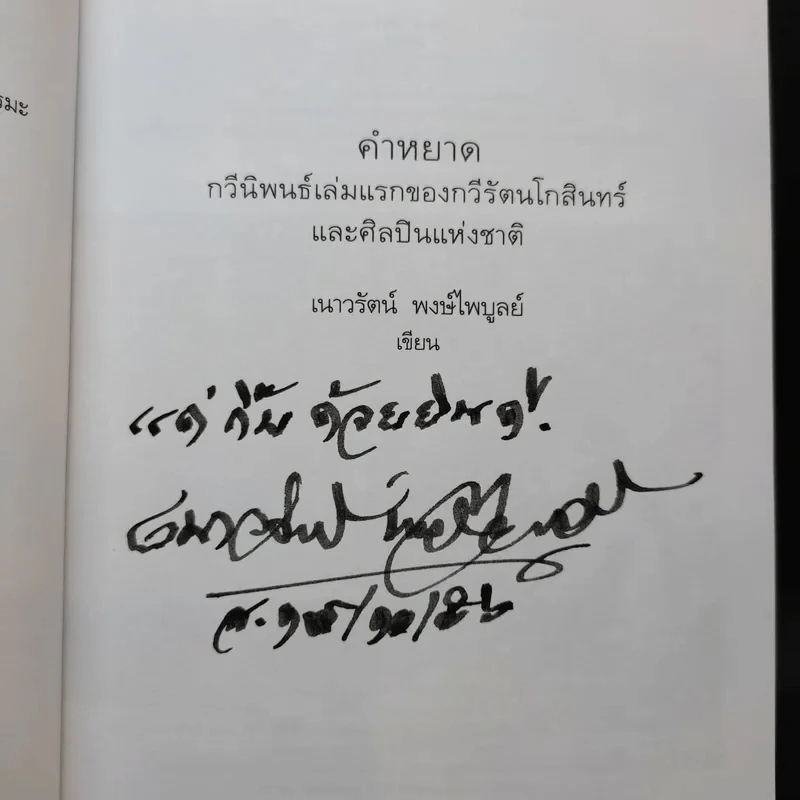 รมะ
คำหยาด
กวีนิพนธ์เล่มแรกของกวีรัตนโกสินทร์
และศิลปินแห่งชาติ
เนาวรัตน์ พงษ์ไพบูลย์
เขียน
แด่ กิ๊บ ด้วยยินดี.
เนาวรัตน์ พงษ์ไพบูลย์